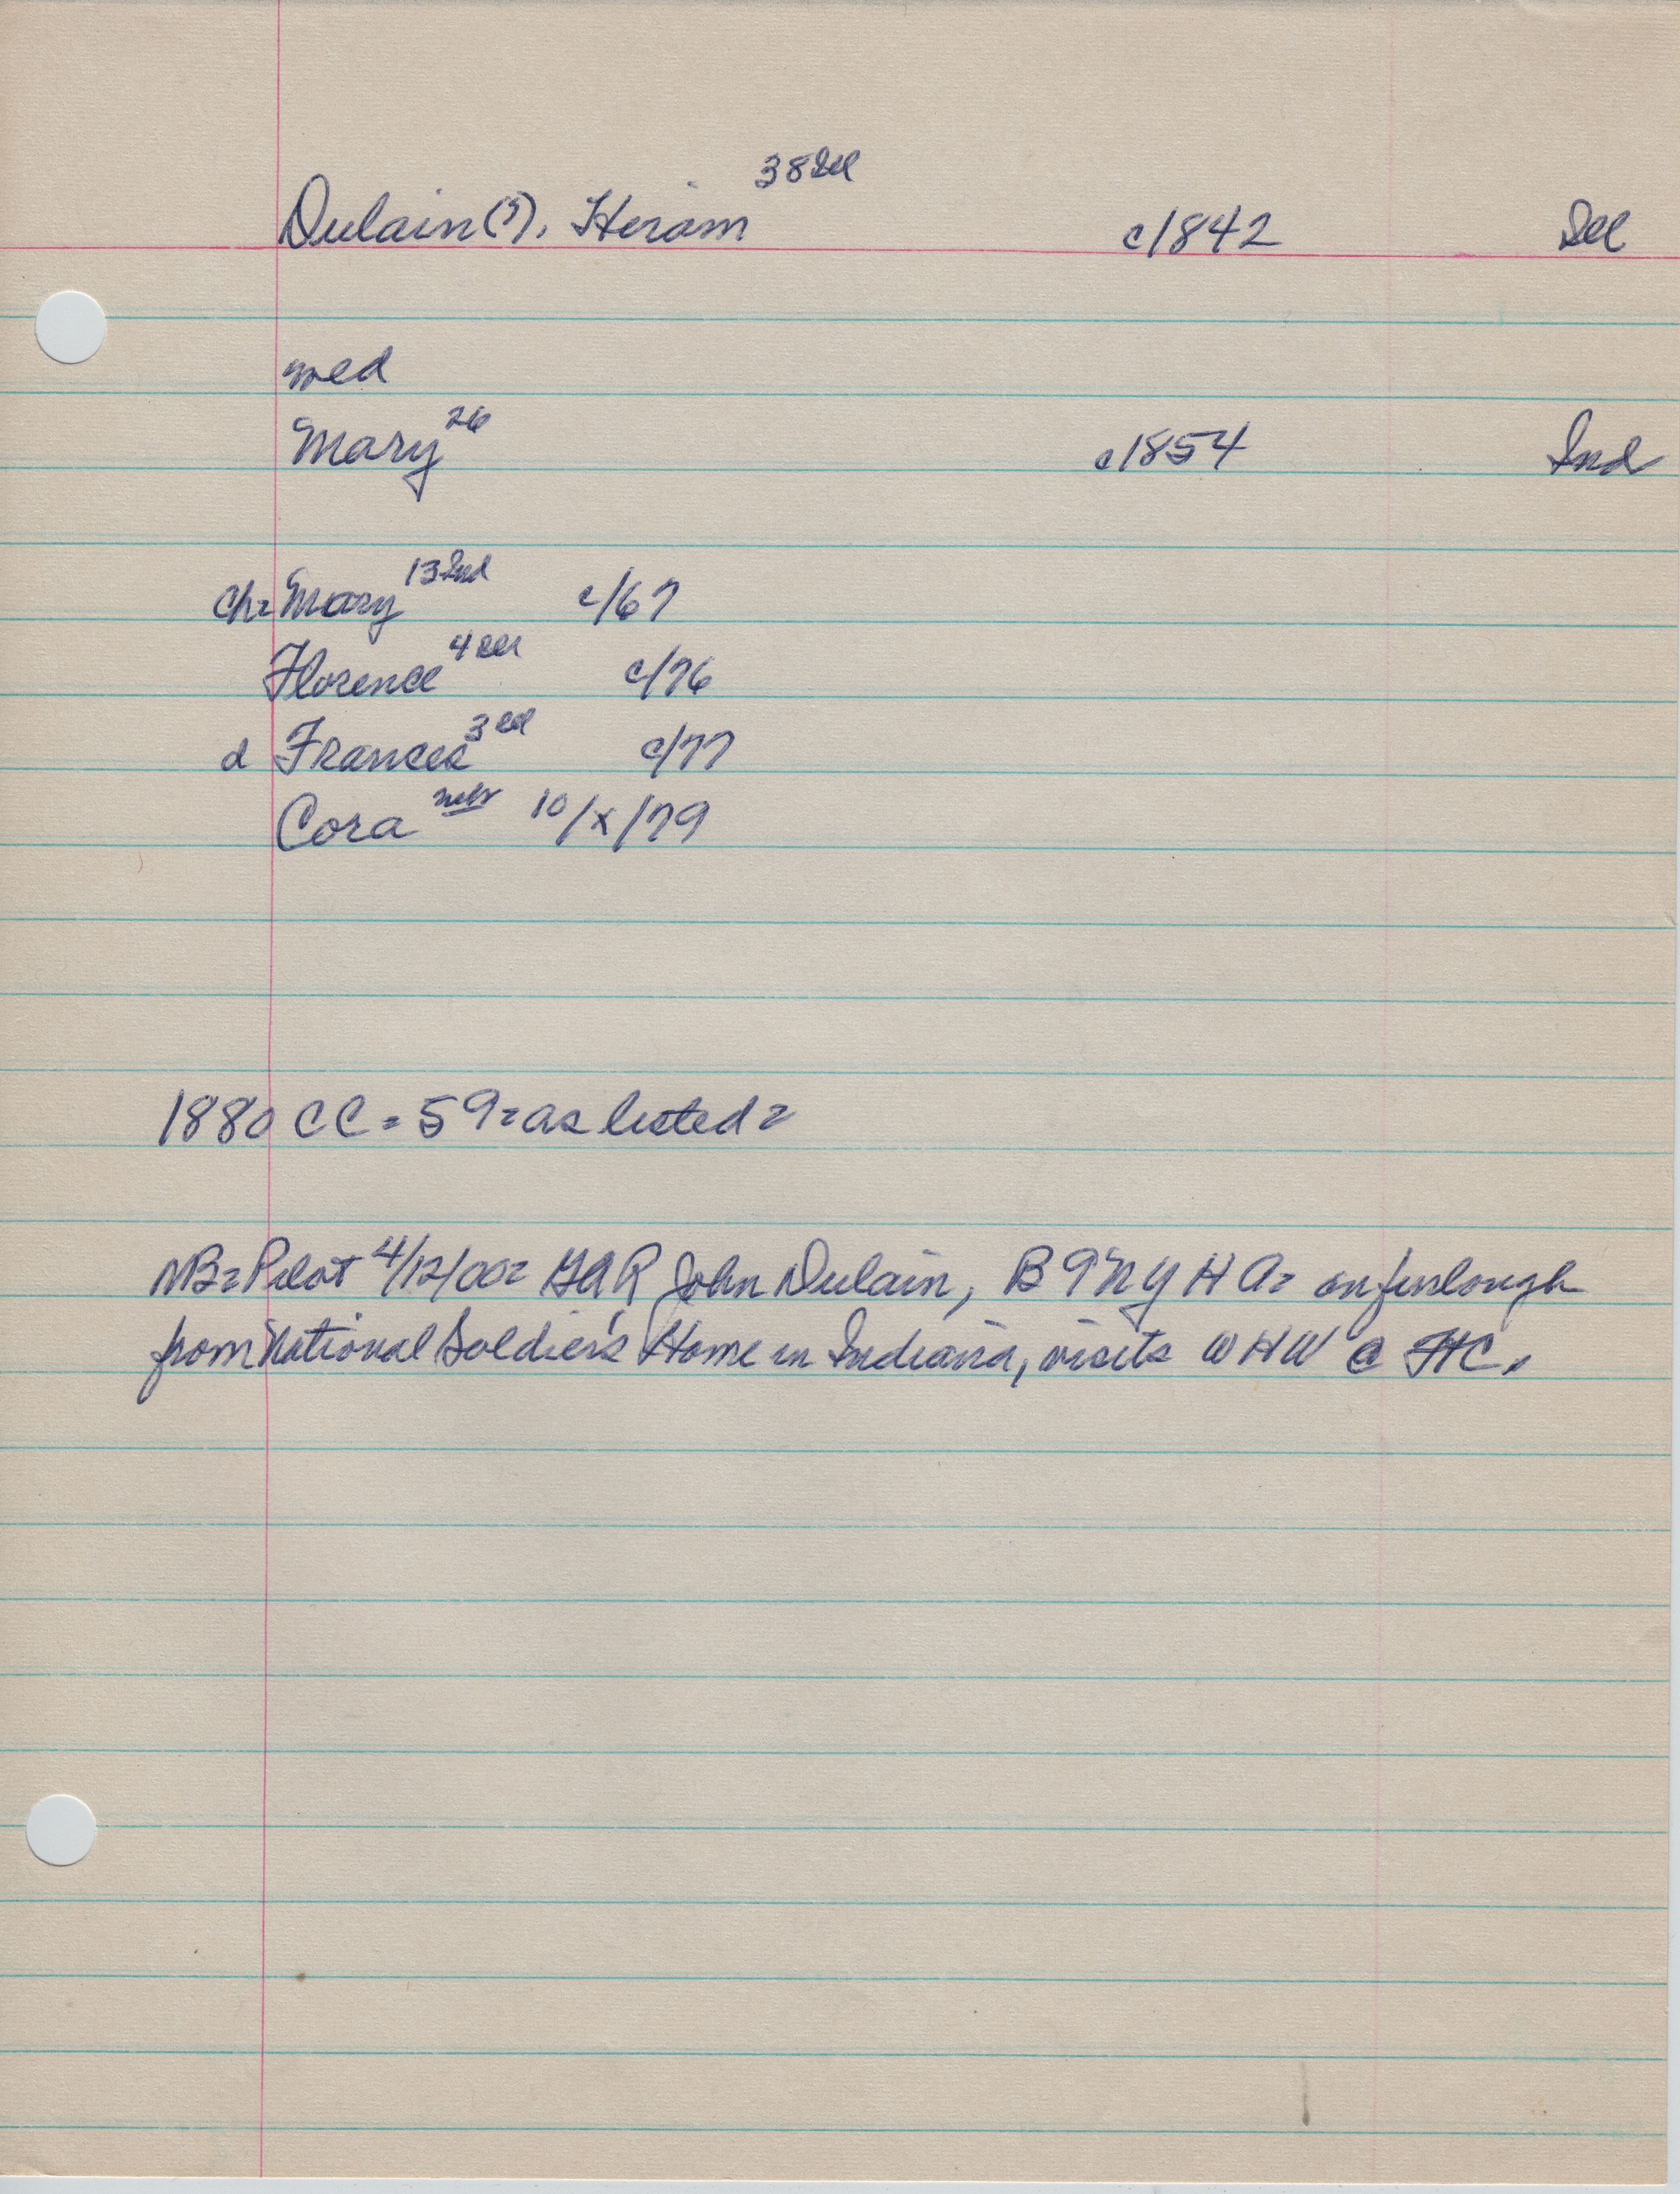 Dulain(?), Hiram 38 Ill c1842 Ill
med
Mary 26 c1854 Ind
ch= Mary 13 Ind c/67
Florence 4 Ill c/76
d Frances 3 Ill c/77
Cora 10/x/79
1880 CC = 59 = as listed =
NB= Pilot 4/12/00= GAR John Dulain, B 9 NY HA= on furlough
from National Soldier's Home in Indiana, visits WHW @ HC.